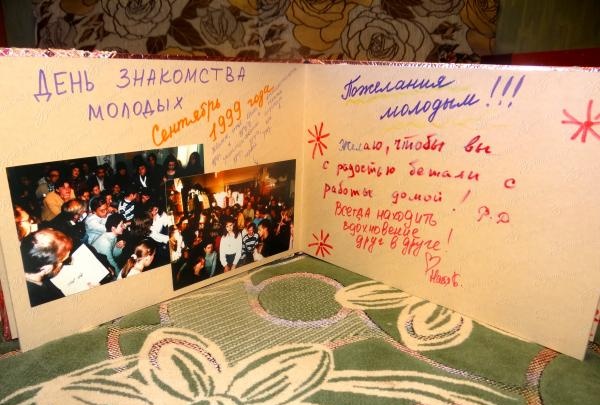 ДЕНЬ ЗНАКОМСТВА
МОЛОДЫХ
Сентябрь
1999 года
Пожелания
молодым!!!
Желаю, чтобы вы
с радостью бежали с
работы домой! Р.Д
Всегда находить
вдохновение
друг в друге!